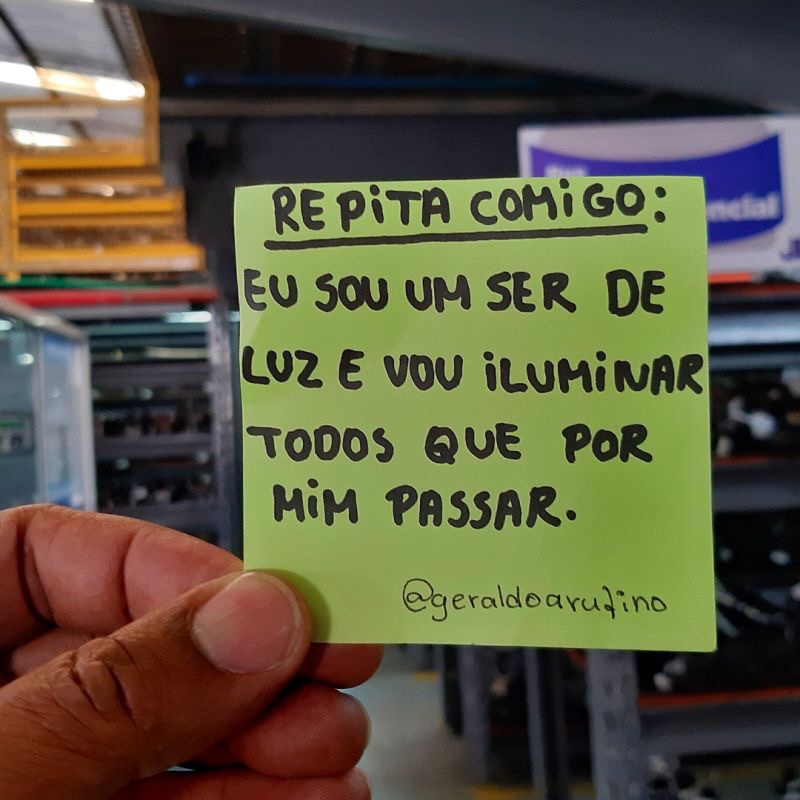 REPiTA COMiGO:
EU SOU UM SER DE
LUZ E VOU iLUMiNAR
TODOS QUE POR
MiM PASSAR.
@geraldoarufino